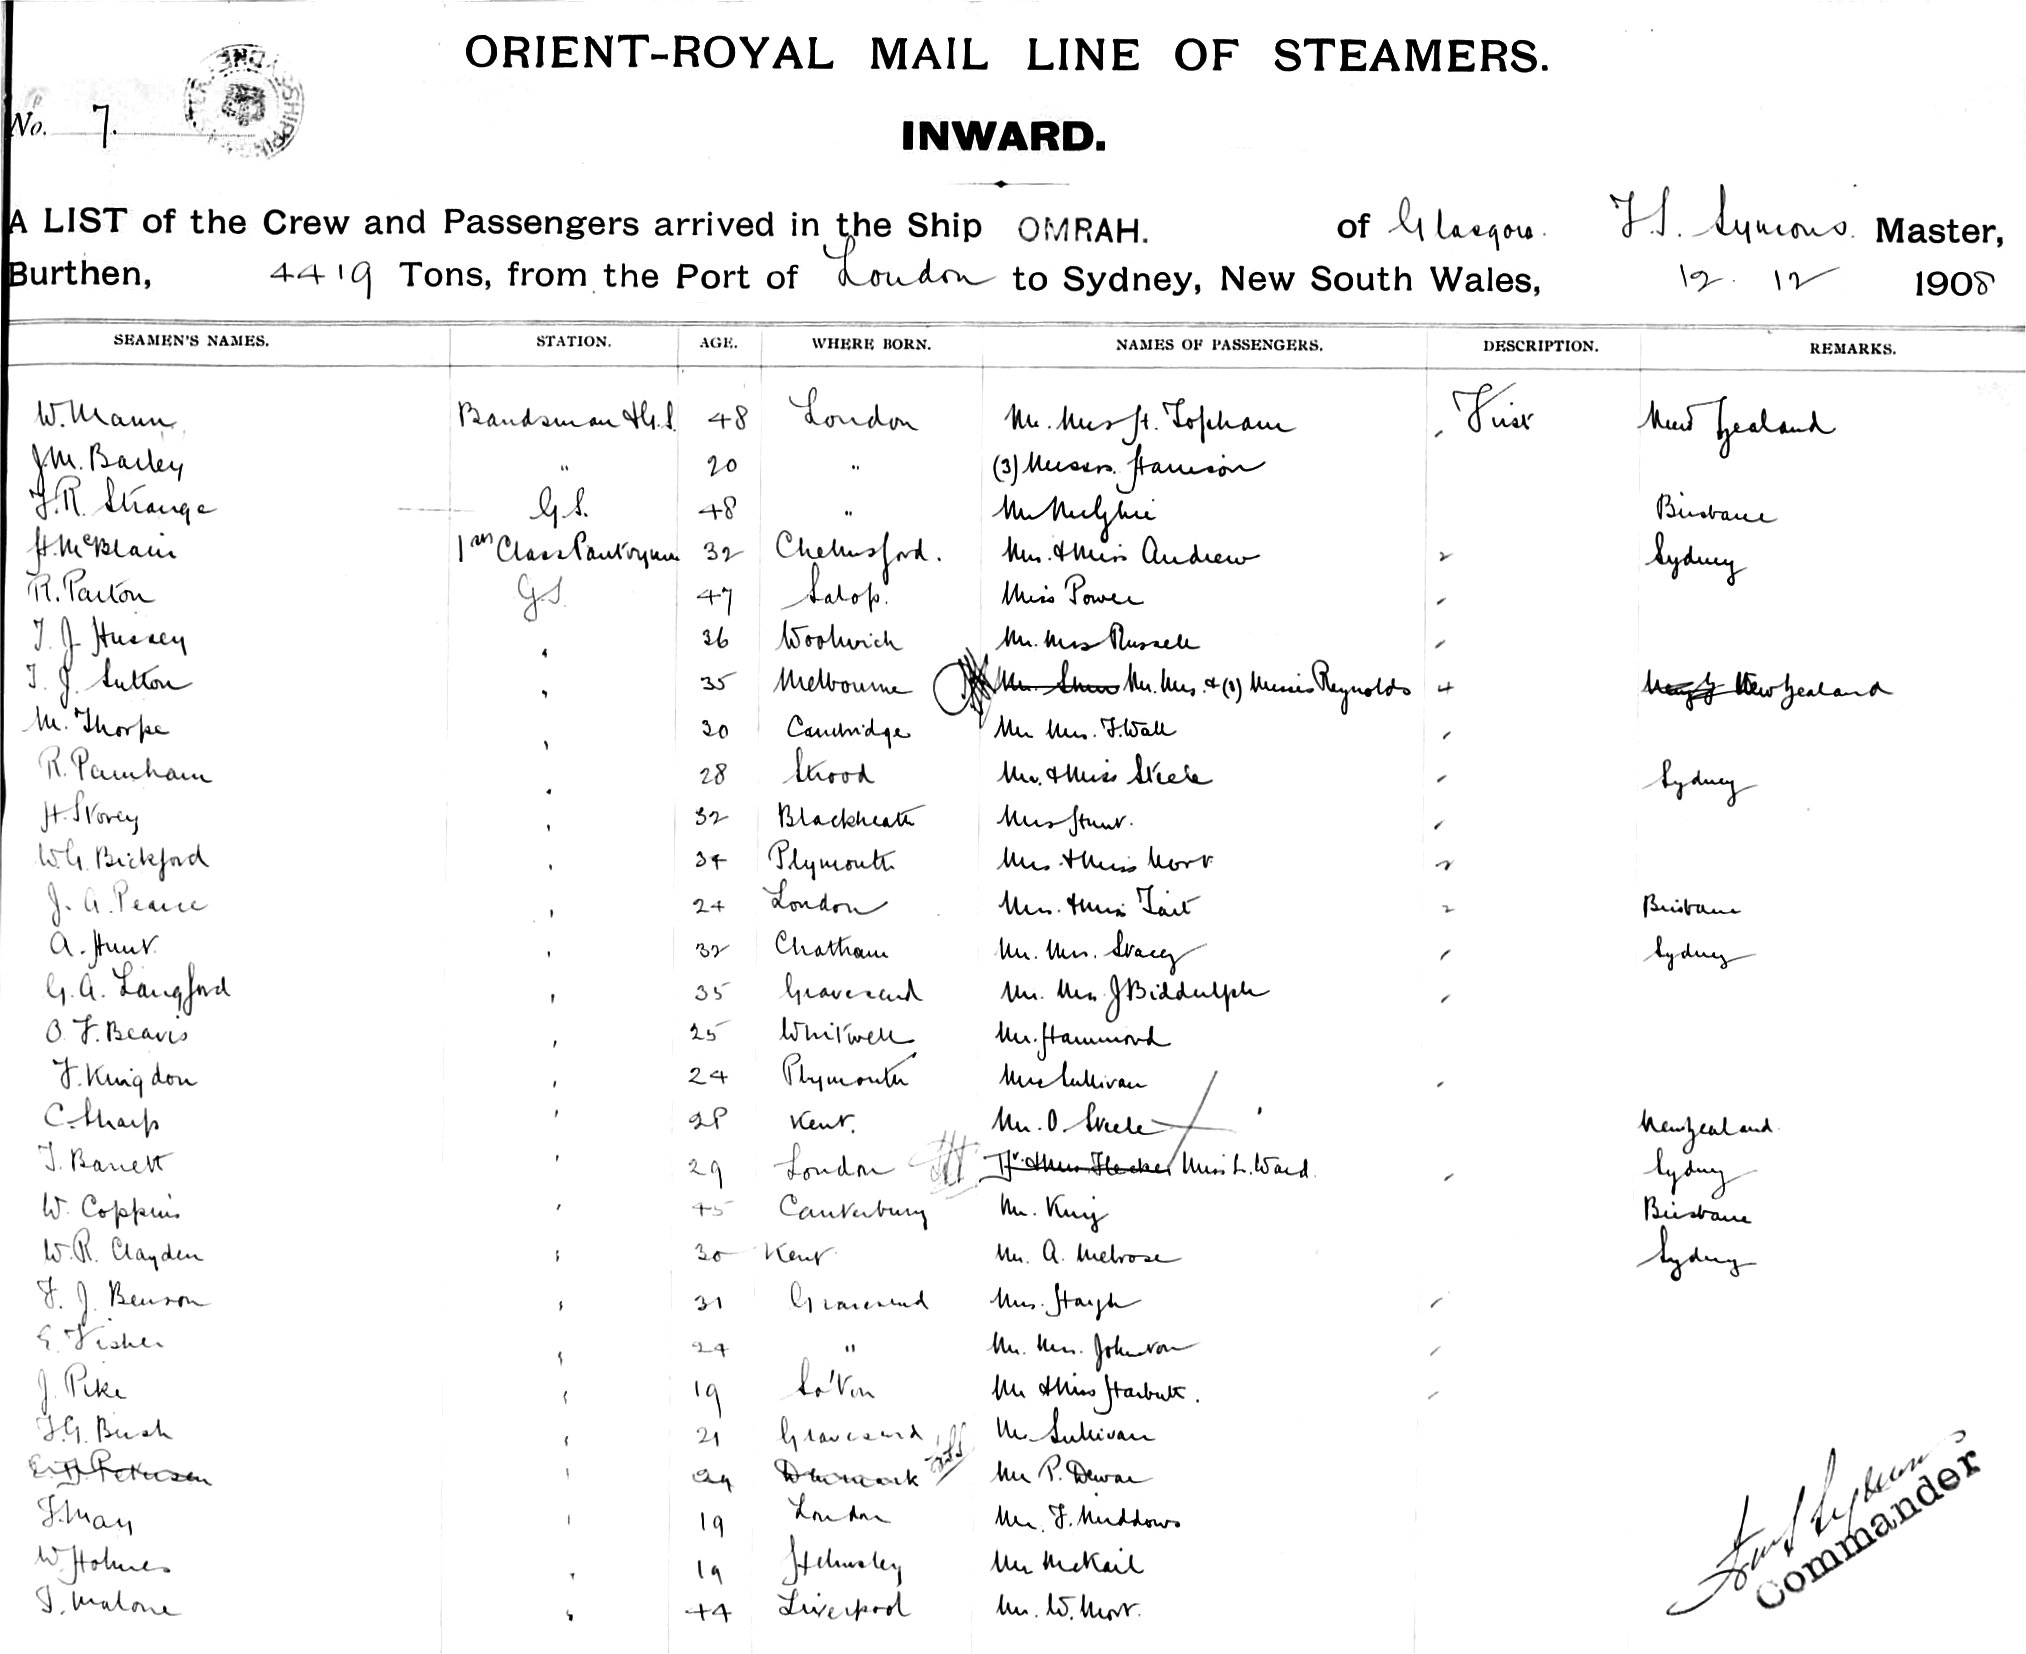 ORIENT-ROYAL MAIL LINE OF STEAMERS.
No. 7.
INWARD.
A LIST of the Crew and Passengers arrived in the Ship OMRAH. of Glasgow. F.S. Symons. Master,
Burthen, 4419 Tons, from the Port of London to Sydney, New South Wales, 12. 12 1908
SEAMEN'S NAMES. STATION. AGE. WHERE BORN. NAMES OF PASSENGERS. DESCRIPTION. REMARKS.
W. Mann Bandsman & G.S. 48 London Mr. Mrs H. Topham First New Zealand
J.M. Bailey " 20 " (3) Messrs. Harrison
F.R. Strange G.S. 48 " Mr McGhie Brisbane
H. McBlain 1st Class Pantryman 32 Chelmsford. Mrs. & Miss Andrew 2 Sydney
R. Parton G.S. 47 Salop. Miss Power
T. J. Hussey 36 Woolwich Mr. Mrs Russell
T. J. Sutton 35 Melbourne Mr. Mrs. & (3) Misses Reynolds 4 New Zealand
M. Thorpe 30 Cambridge Mr Mrs. F. Wall
R. Parnham 28 Strood Mr. & Miss Steele Sydney
H. Storey 32 Blackheath Mrs Hunt.
W.G. Bickford 34 Plymouth Mrs & Miss Mort 2
J. A. Pearce 24 London Mrs. & Miss Tait 2 Brisbane
A. Hunt. 32 Chatham Mr. Mrs. Stacey Sydney
G. A. Langford 35 Gravesend Mr. Mrs J Biddulph
O. F. Beavis 25 Whitwell Mr. Hammond
F. Kingdon 24 Plymouth Mrs Sullivan
C. Sharp 28 Kent. Mr. O. Steele New Zealand.
T. Barrett 29 London Miss L. Ward. Sydney
W. Coppins 45 Canterbury Mr. King Brisbane
W. R. Clayden 30 Kent Mr. A. Melrose Sydney
F. J. Benson 31 Gravesend Mrs. Haigh
E. Fisher 24 " Mr. Mrs. Johnston
J. Pike 19 So'ton Mr & Miss Harbutt.
F.G. Bush 21 Gravesend Mr Sullivan
E. H. Petersen 29 Denmark Mr P. Dewar
F. May 19 London Mr. F. Middows
W. Holmes 19 Helmsley Mr McKail
T. Malone 44 Liverpool Mr. W. Mort.
Commander